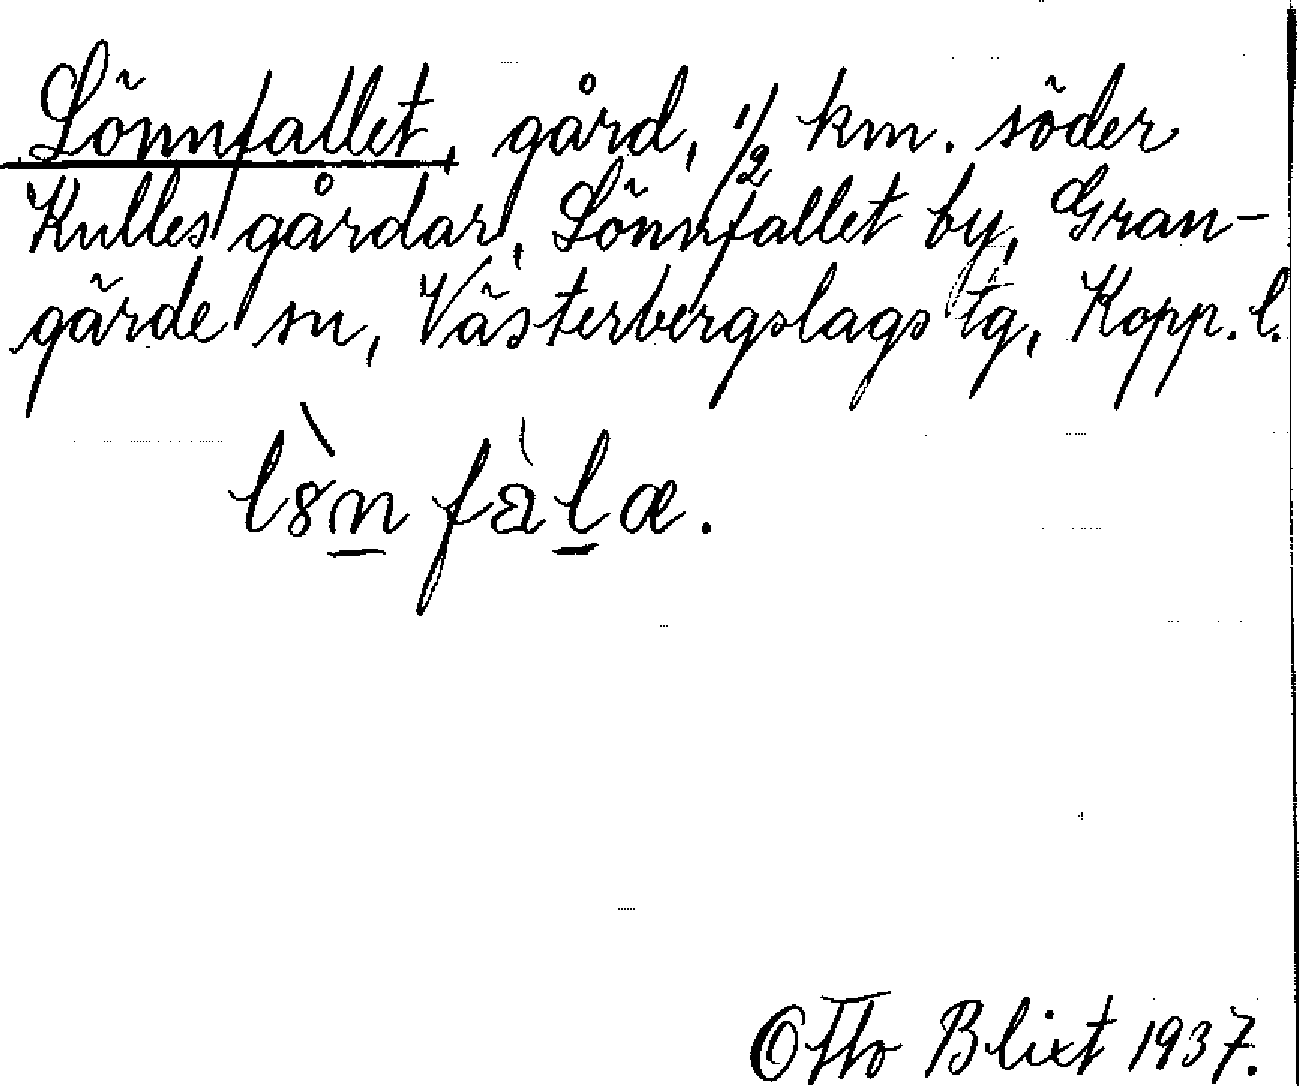 Lönnfallet, gård, 1/2 km. söder
Kulles gårdar, Lönnfallet by, Gran-
gärde sn, Västerbergslags tg, Kopp. l.
lȣ̀n fàlæ.
Otto Blixt 1937.